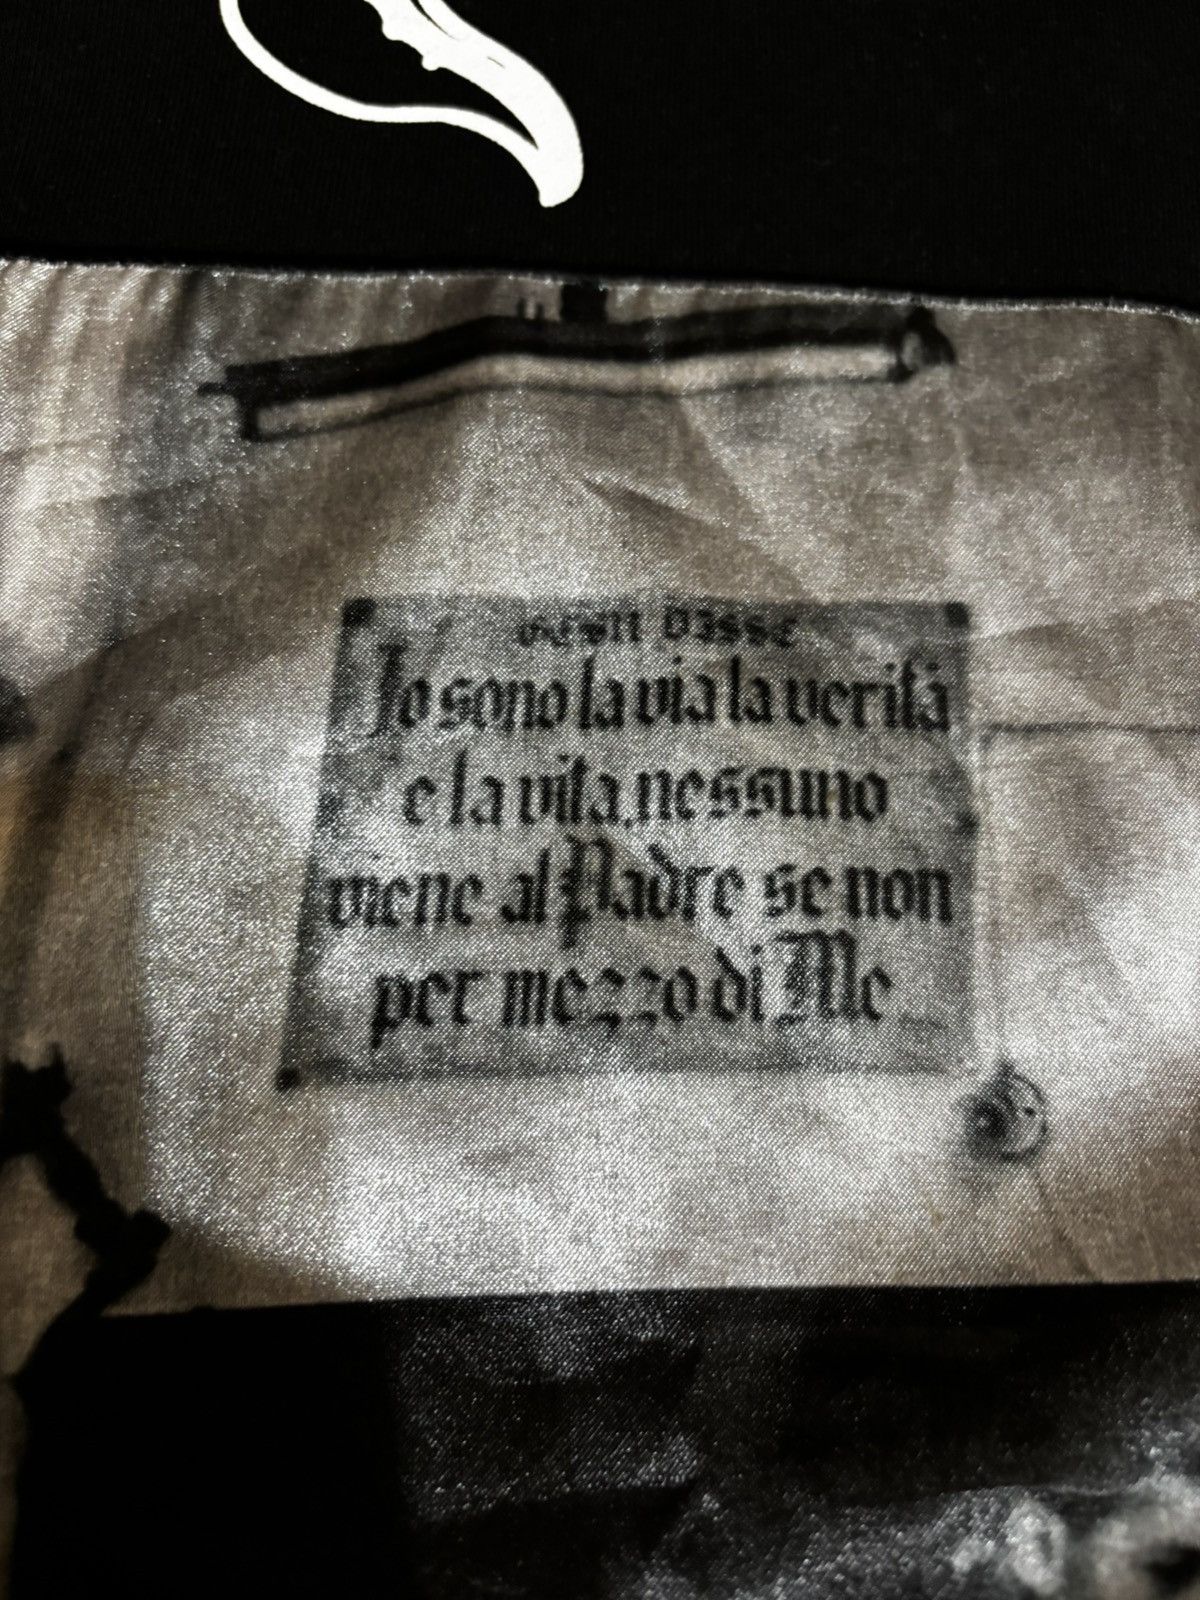 GESU DISSE
Io sono la via la verità
e la vita, nessuno
viene al Padre se non
per mezzo di Me